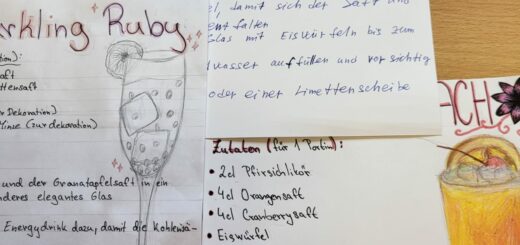 rkling Ruby
on):
aft
ttensaft
r Dekoration)
Minze (zur dekoration)
und der Granatapfelsaft in ein
nderes elegantes Glas
Energydrink dazu, damit die kohlensä-
el, damit sich der Saft und
ent falten
Glas mit Eiswürfeln bis zum
wasser auffüllen und vorsichtig
oder einer Limettenscheibe
Zutaten (für 1 Portion):
• 2cl Pfirsichlikör
• 4cl Orangensaft
• 4cl Cranberrysaft
• Eiswürfel
ACH